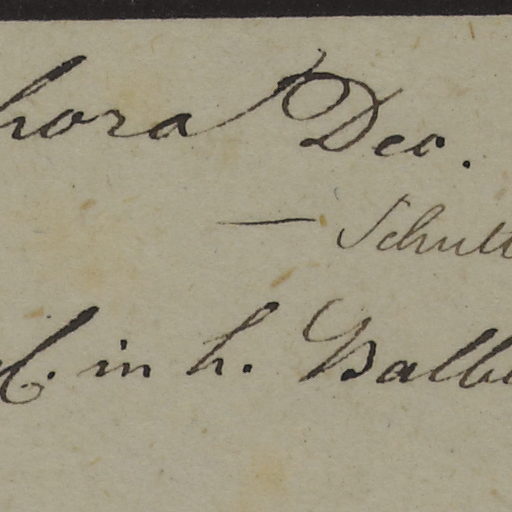 hora Dec.
— Schult
b. in h. Balb